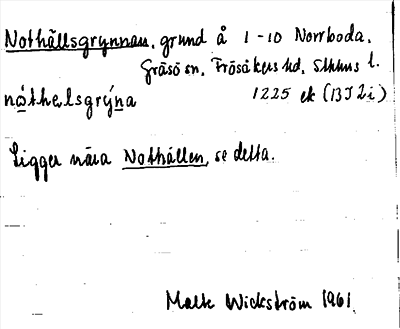 Nothällsgrynnan, grund å 1-10 Norrboda,
Gräsö sn, Frösåkers hd, Sthlms l.
nọ́thelsgrýna 1225 ek (13I 2i)
Ligger nära Nothällen, se detta.
Malte Wickström 1961.